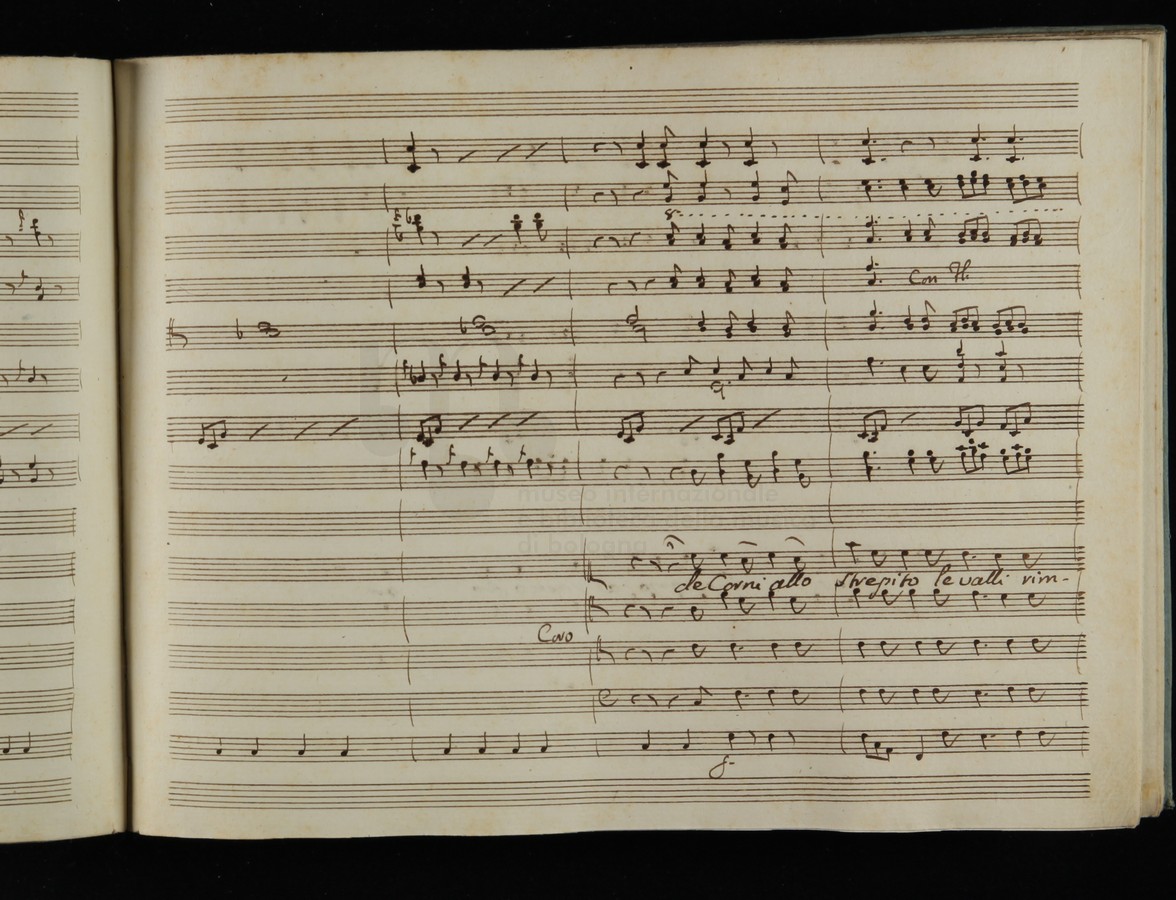 8-
Con Fl.
museo internazionale
e biblioteca della musica
di bologna
de Corni allo strepito le valli rim-
Coro
f-